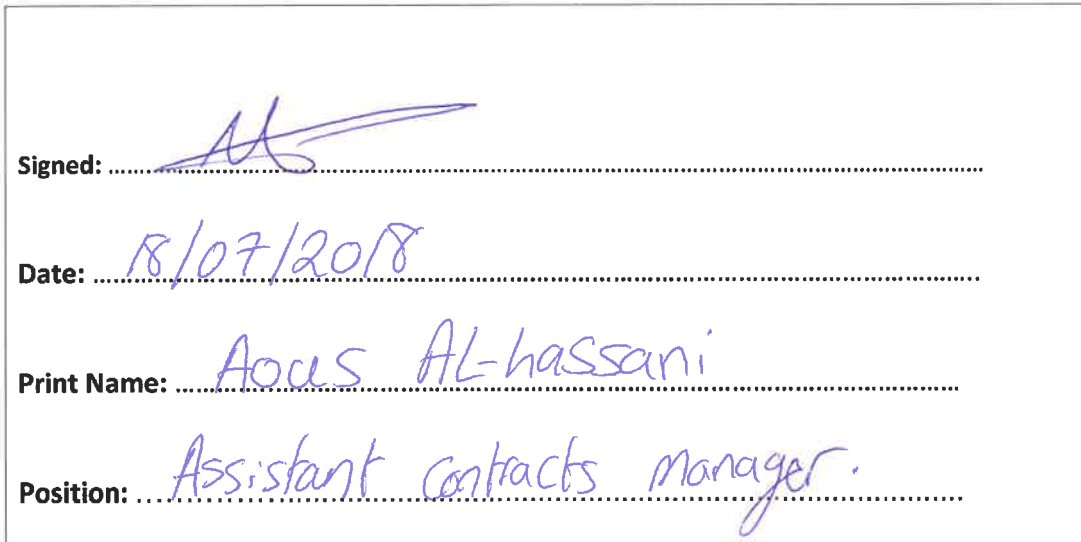 Signed:
Date: 18/07/2018
Print Name: Aous AL-hassani
Position: Assistant contracts manager.